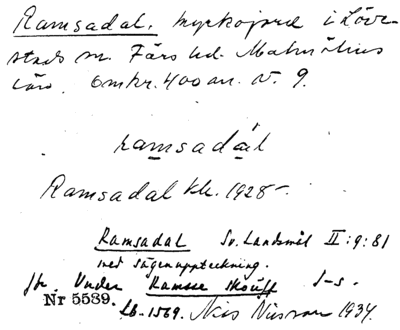 Ramsadal. myrkojord i Löve-
stads sn. Färs hd. Malmöhus
län. Omkr. 400 m. v. 9.
ramsadal
Ramsadal kk. 1928
Ramsadal Sv. Landsmål II:9:81
med sägenuppteckning.
jfr. Under Ramse
Nr 5589. Lb. 1569. Nils Nilsson 1934.